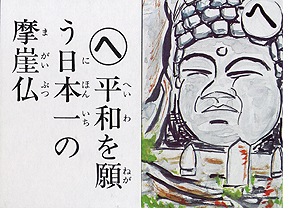 へ
平和を願
う日本一の
摩崖仏
へいわ
ねが
にほんいち
まがいぶつ
へ